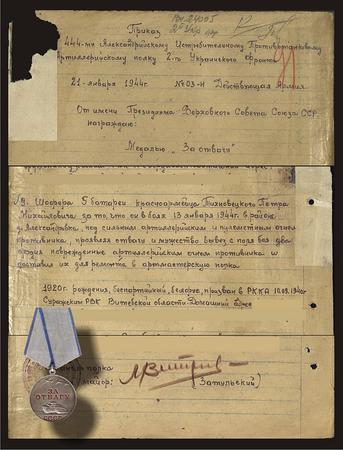 Приказ
444-му Александрийскому Истребительному Противотанковому
Артиллерийскому полку 2-го Украинского фронта
21-января 1944г. №03-н Действующая Армия
От имени Президиума Верховного Совета Союза ССР
награждаю:
Медалью "За отвагу"
Шофера 5 батареи красноармейца Тихновецкого Петра
Михайловича за то, что он в боях 13 января 1944г. в районе
д. Александровка, под сильным артиллерийским и пулеметным огнем
противника, проявляя отвагу и мужество вывез с поля боя два
орудия поврежденные артиллерийским огнем противника и
доставил их для ремонта в артмастерскую полка
1920г. рождения, беспартийный, белорус, призван в РККА 10.09.1940г
Суражским РВК Витебской области
полка
майор: (Затульский)
ЗА
ОТВАГУ
СССР